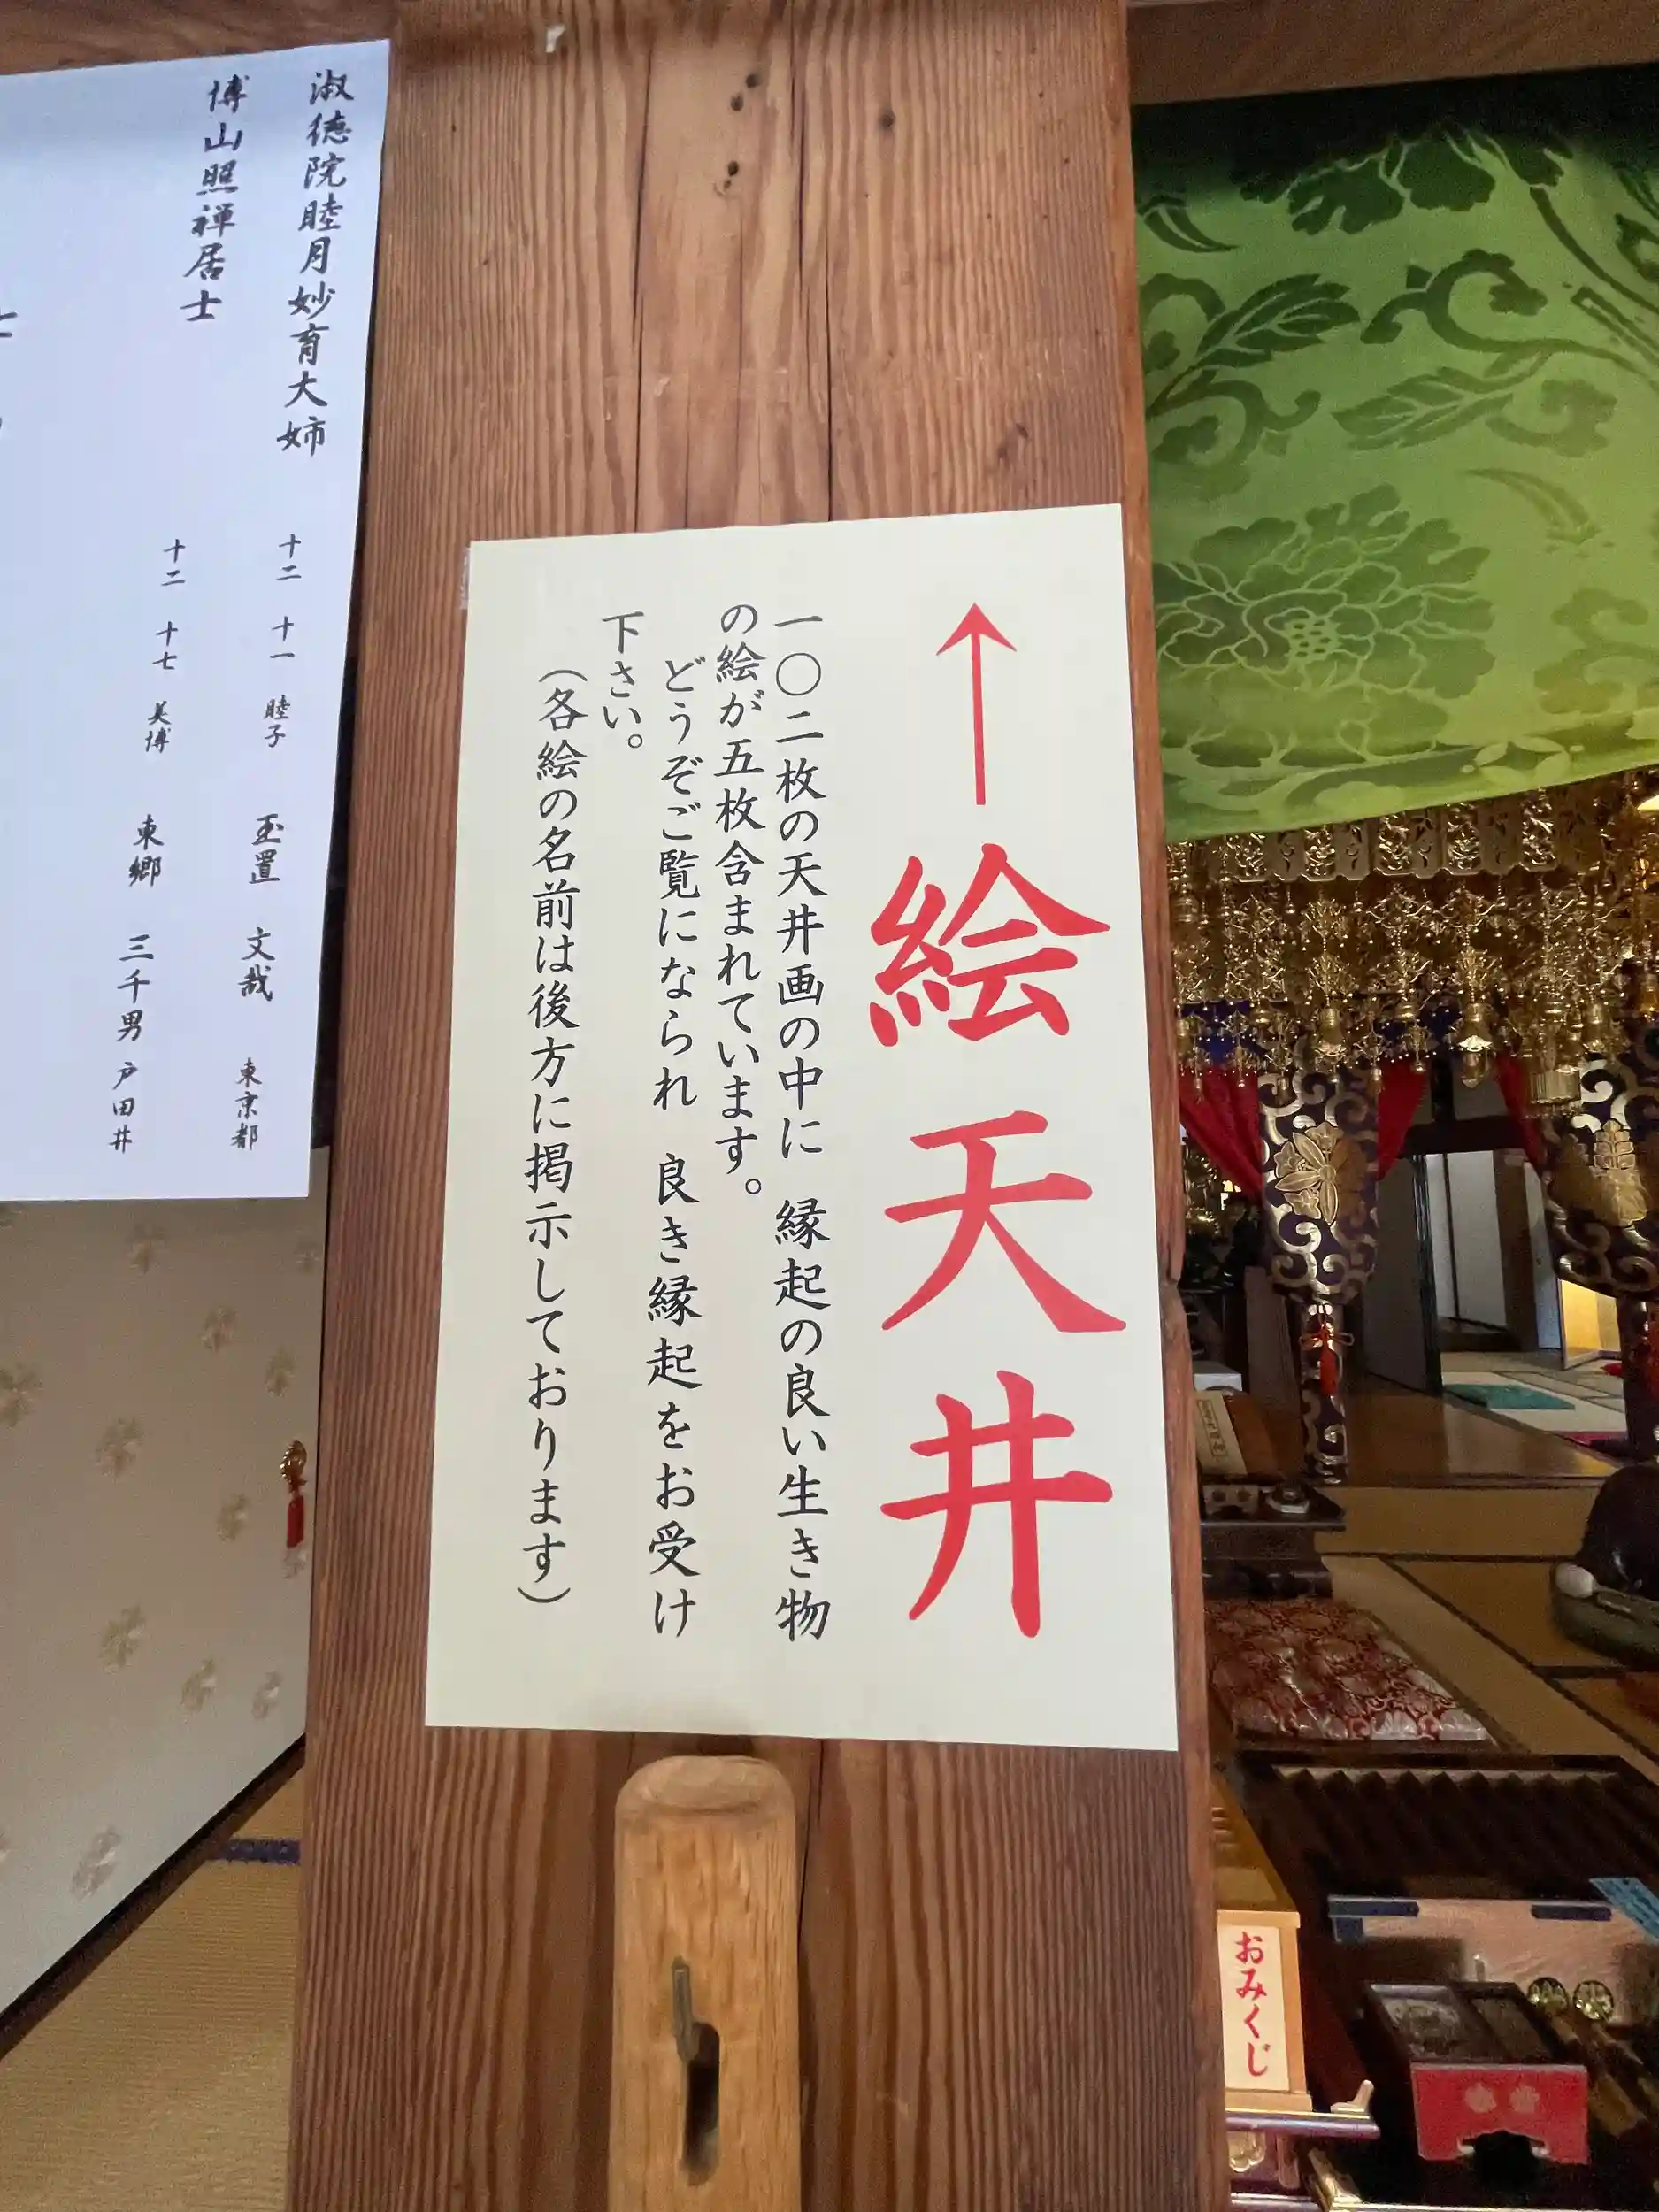 絵天井
一〇二枚の天井画の中に 縁起の良い生き物
の絵が五枚含まれています。
どうぞご覧になられ 良き縁起をお受け
下さい。
(各絵の名前は後方に掲示しております)
淑徳院睦月妙育大姉 十二 十一 睦子 玉置 文哉 東京都
博山照禅居士 十二 十七 美博 東郷 三千男 戸田井
おみくじ